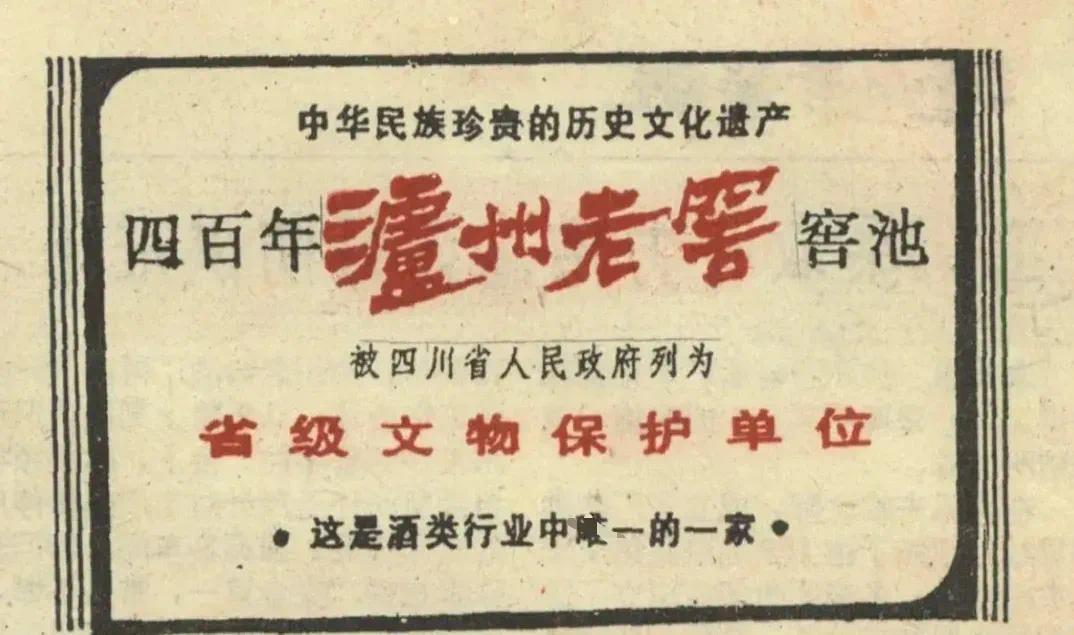 中华民族珍贵的历史文化遗产
四百年泸州老窖窖池
被四川省人民政府列为
省级文物保护单位
•这是酒类行业中唯一的一家•